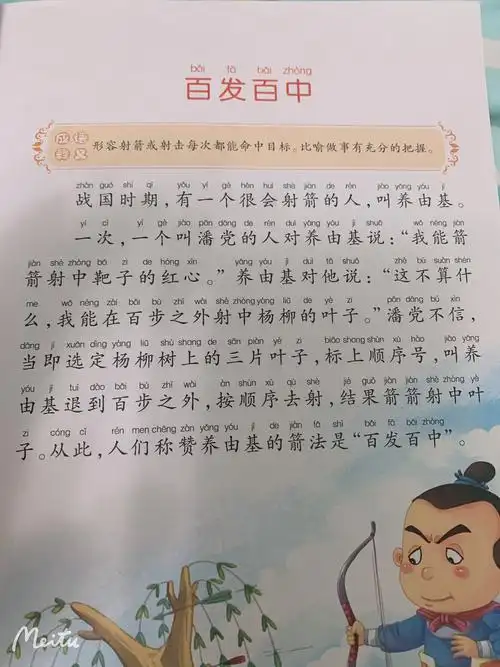 bǎi fā bǎi zhòng
百发百中
成语释义 形容射箭或射击每次都能命中目标。比喻做事有充分的把握。
zhàn guó shí qī yǒu yí gè hěn huì shè jiàn de rén jiào yǎng yóu jī
战国时期，有一个很会射箭的人，叫养由基。
yí cì yí gè jiào pān dǎng de rén duì yǎng yóu jī shuō wǒ néng jiàn
一次，一个叫潘党的人对养由基说：“我能箭
jiàn shè zhòng bǎ zi de hóng xīn yǎng yóu jī duì tā shuō zhè bú suàn shén
箭射中靶子的红心。”养由基对他说：“这不算什
me wǒ néng zài bǎi bù zhī wài shè zhòng yáng liǔ de yè zi pān dǎng bú xìn
么，我能在百步之外射中杨柳的叶子。”潘党不信，
dāng jí xuǎn dìng yáng liǔ shù shang de sān piàn yè zi biāo shang shùn xù hào jiào yǎng
当即选定杨柳树上的三片叶子，标上顺序号，叫养
yóu jī tuì dào bǎi bù zhī wài àn shùn xù qù shè jié guǒ jiàn jiàn shè zhòng yè
由基退到百步之外，按顺序去射，结果箭箭射中叶
zi cóng cǐ rén men chēng zàn yǎng yóu jī de jiàn fǎ shì bǎi fā bǎi zhòng
子。从此，人们称赞养由基的箭法是“百发百中”。
Meitu